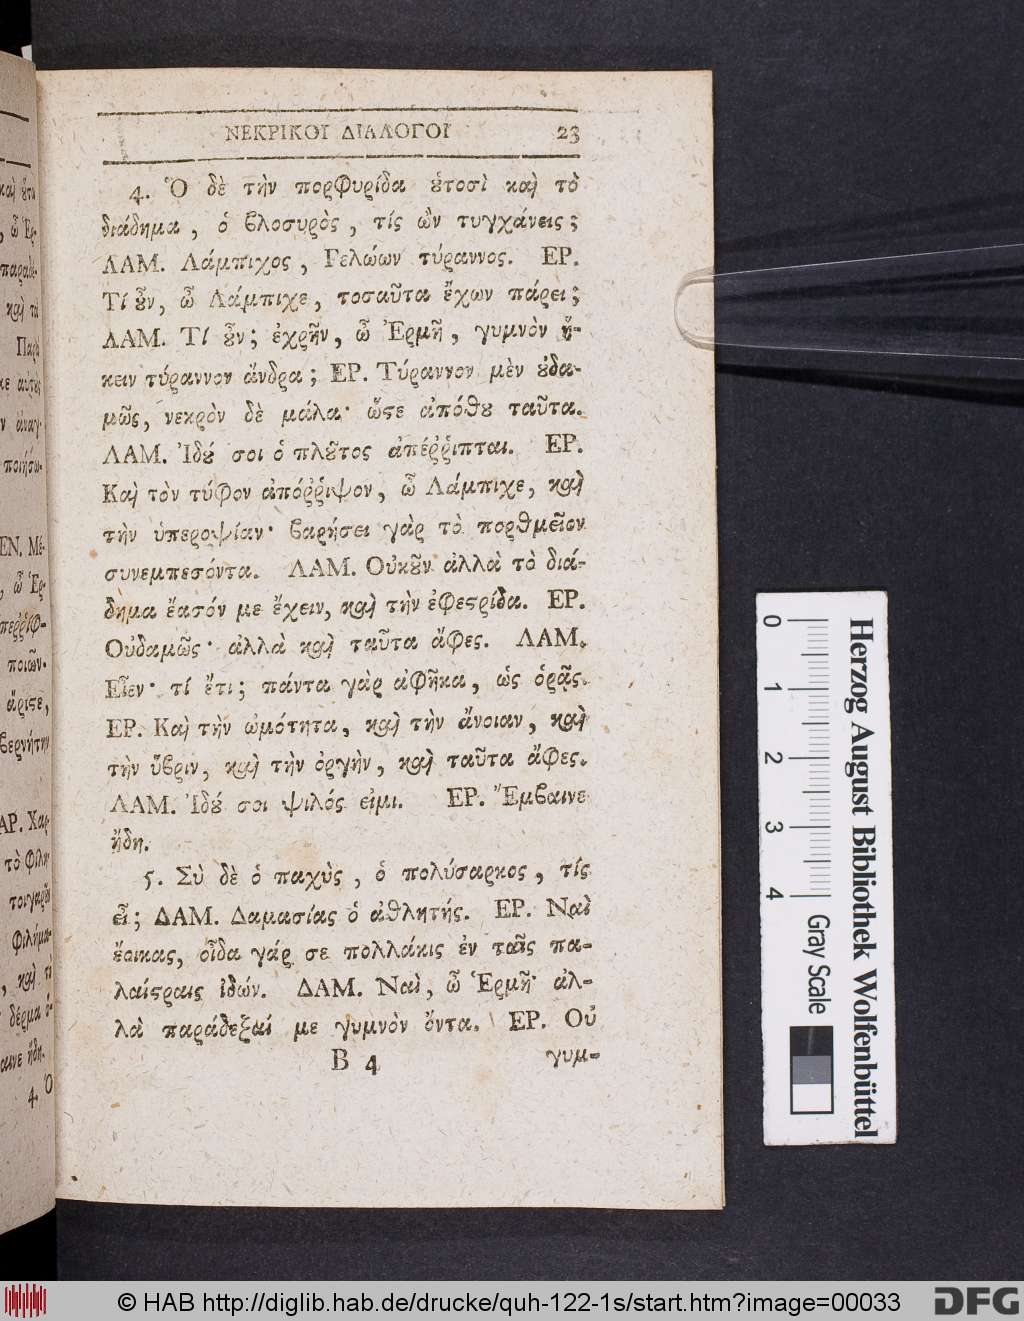 ΝΕΚΡΙΚΟΙ ΔΙΑΛΟΓΟΙ 23
4. Ὁ δὲ τὴν πορφυρίδα ȣ̔τοσὶ καὶ τὸ
διάδημα, ὁ βλοσυρὸς, τίς ὢν τυγχάνεις;
ΛΑΜ. Λάμπιχος, Γελώων τύραννος. ΕΡ.
Τί ȣ̓͂ν, ὦ Λάμπιχε, τοσαῦτα ἔχων πάρει;
ΛΑΜ. Τί ȣ̓͂ν; ἐχρῆν, ὦ Ἑρμῆ, γυμνὸν ἥ-
κειν τύραννον ἄνδρα; ΕΡ. Τύραννον μὲν ȣ̓δα-
μῶς, νεκρὸν δὲ μάλα· ὥϛε ἀπόθȣ ταῦτα.
ΛΑΜ. Ἰδȣ́ σοι ὁ πλȣ͂τος ἀπέῤῥιπται. ΕΡ.
Καὶ τὸν τύφον ἀπόῤῥιψον, ὦ Λάμπιχε, καὶ
τὴν ὑπεροψίαν· βαρήσει γὰρ τὸ πορθμεῖον
συνεμπεσόντα. ΛΑΜ. Οὐκȣ͂ν ἀλλὰ τὸ διά-
δημα ἔασόν με ἔχειν, καὶ τὴν ἐφεϛρίδα. ΕΡ.
Οὐδαμῶς· ἀλλὰ καὶ ταῦτα ἄφες. ΛΑΜ.
Εἶεν· τί ἔτι; πάντα γὰρ ἀφῆκα, ὡς ὁρᾷς.
ΕΡ. Καὶ τὴν ὠμότητα, καὶ τὴν ἄνοιαν, καὶ
τὴν ὕβριν, καὶ τὴν ὀργὴν, καὶ ταῦτα ἄφες.
ΛΑΜ. Ἰδȣ́ σοι ψιλός εἰμι. ΕΡ. Ἔμβαινε
ἤδη.
5. Σὺ δὲ ὁ παχὺς, ὁ πολύσαρκος, τίς
εἶ; ΔΑΜ. Δαμασίας ὁ ἀθλητής. ΕΡ. Ναὶ
ἔοικας, οἶδα γάρ σε πολλάκις ἐν ταῖς πα-
λαίϛραις ἰδών. ΔΑΜ. Ναὶ, ὦ Ἑρμῆ· ἀλ-
λὰ παράδεξαί με γυμνὸν ὄντα. ΕΡ. Οὐ
B 4 γυμ-
0 1 2 3 4
Gray Scale
Herzog August Bibliothek Wolfenbüttel
© HAB http://diglib.hab.de/drucke/quh-122-1s/start.htm?image=00033
DFG